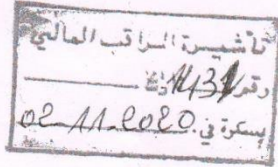 تأشيرة المراقب المالي
رقم
بسكرة في 02-11-2020